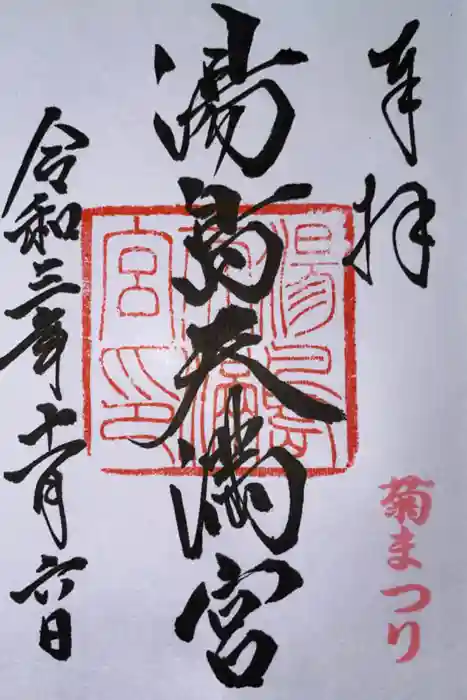 奉拝
菊まつり
湯島天満宮
湯島
天満
宮印
令和三年十一月六日